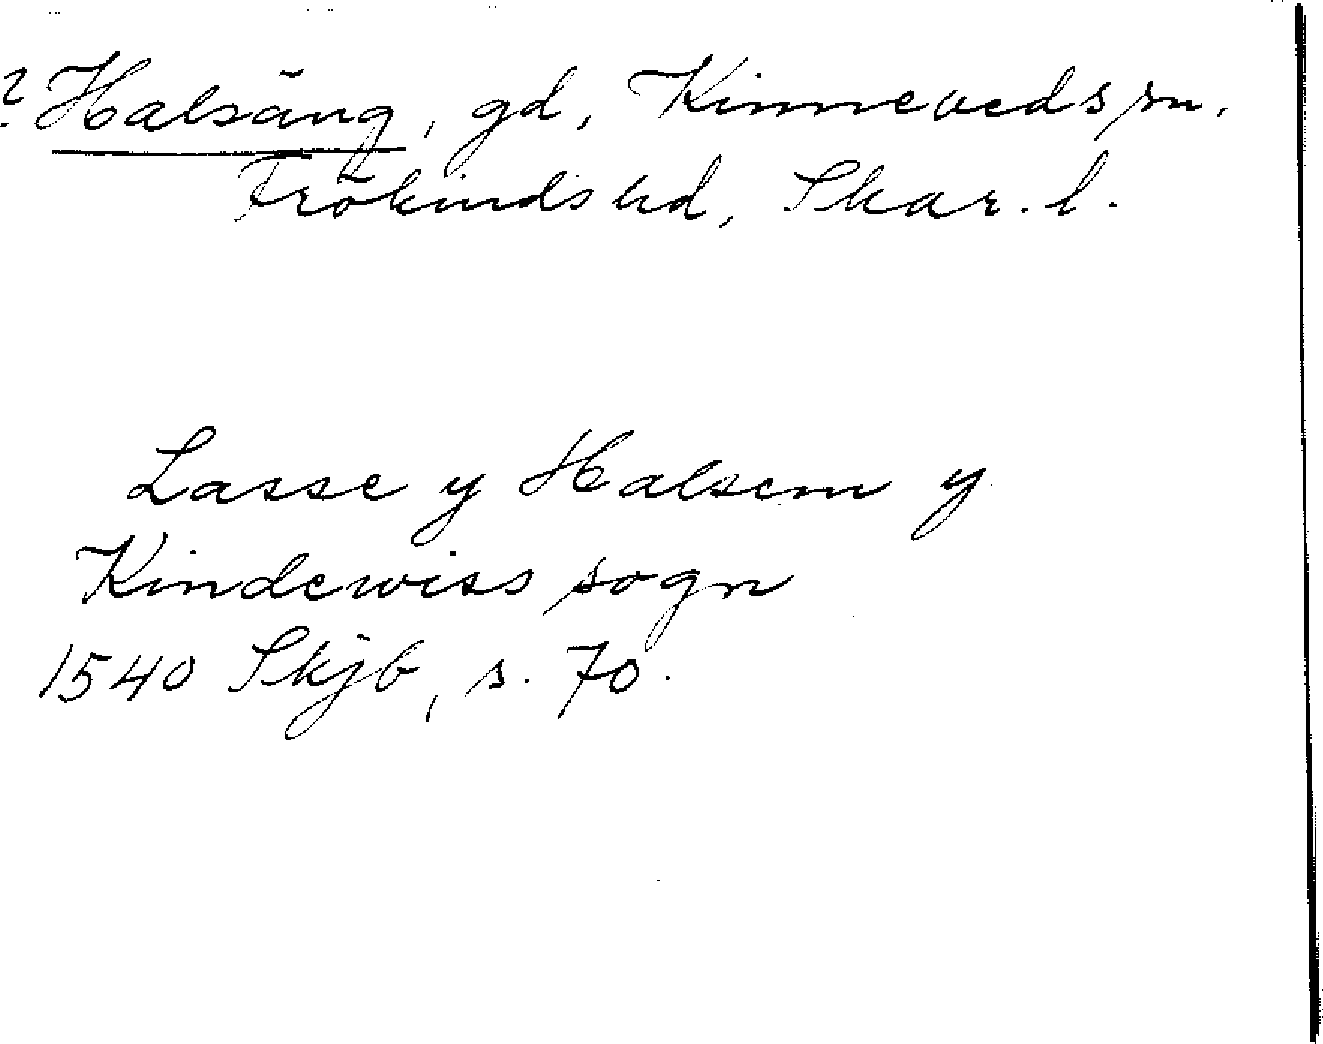 ? Halsäng, gd, Kinneveds sn.
Frökinds hd, Skar. l.
Lasse y Halsem y
Kindewiss sogn
1540 Skjb, s. 70.